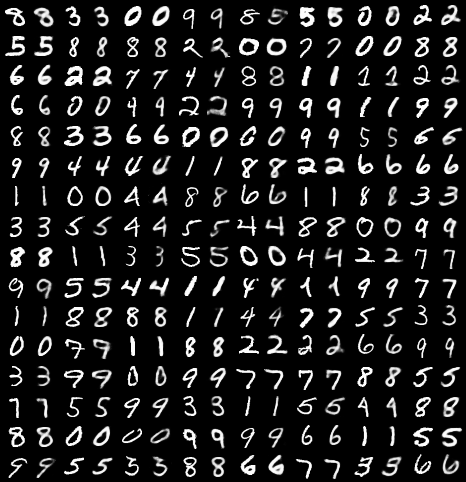 8 8 3 3 0 0 9 9 8 5 5 5 0 0 2 2
5 5 8 8 8 8 2 2 0 0 7 7 0 0 8 8
6 6 2 2 7 7 4 4 8 8 1 1 1 1 2 2
6 6 0 0 4 4 2 2 9 9 9 9 1 1 9 9
8 8 3 3 6 6 0 0 0 0 9 9 5 5 6 6
9 9 4 4 4 4 1 1 8 8 2 2 6 6 6 6
1 1 0 0 4 4 8 8 6 6 1 1 8 8 3 3
3 3 5 5 4 4 5 5 4 4 8 8 0 0 9 9
8 8 1 1 3 3 5 5 0 0 4 4 2 2 7 7
9 9 5 5 4 4 1 1 4 4 1 1 9 9 7 7
1 1 8 8 8 8 1 1 4 4 7 7 5 5 3 3
0 0 7 7 1 1 8 8 2 2 2 2 6 6 9 9
3 3 9 9 0 0 9 9 7 7 7 7 8 8 5 5
7 7 5 5 9 9 3 3 1 1 5 5 4 4 8 8
8 8 0 0 0 0 9 9 9 9 6 6 1 1 5 5
9 9 5 5 3 3 8 8 6 6 7 7 3 3 6 6